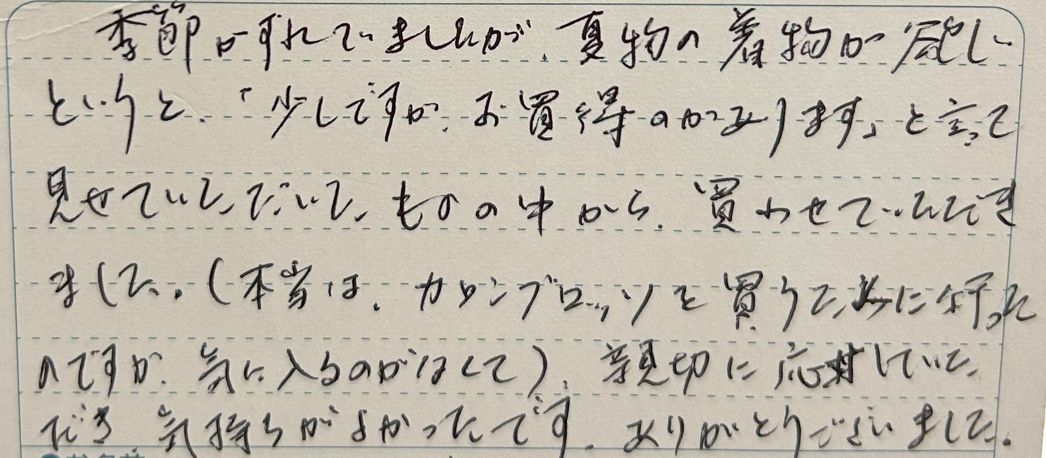 季節がずれていましたが、夏物の着物が欲しい
というと、「少しですが、お買得のがあります」と言って
見せていただいた、ものの中から、買わせていただき
ました。(本当は、カタンブロッソを買うために行った
のですが、気に入るのがなくて)、親切に応対していた
だき、気持ちがよかったです。ありがとうございました。